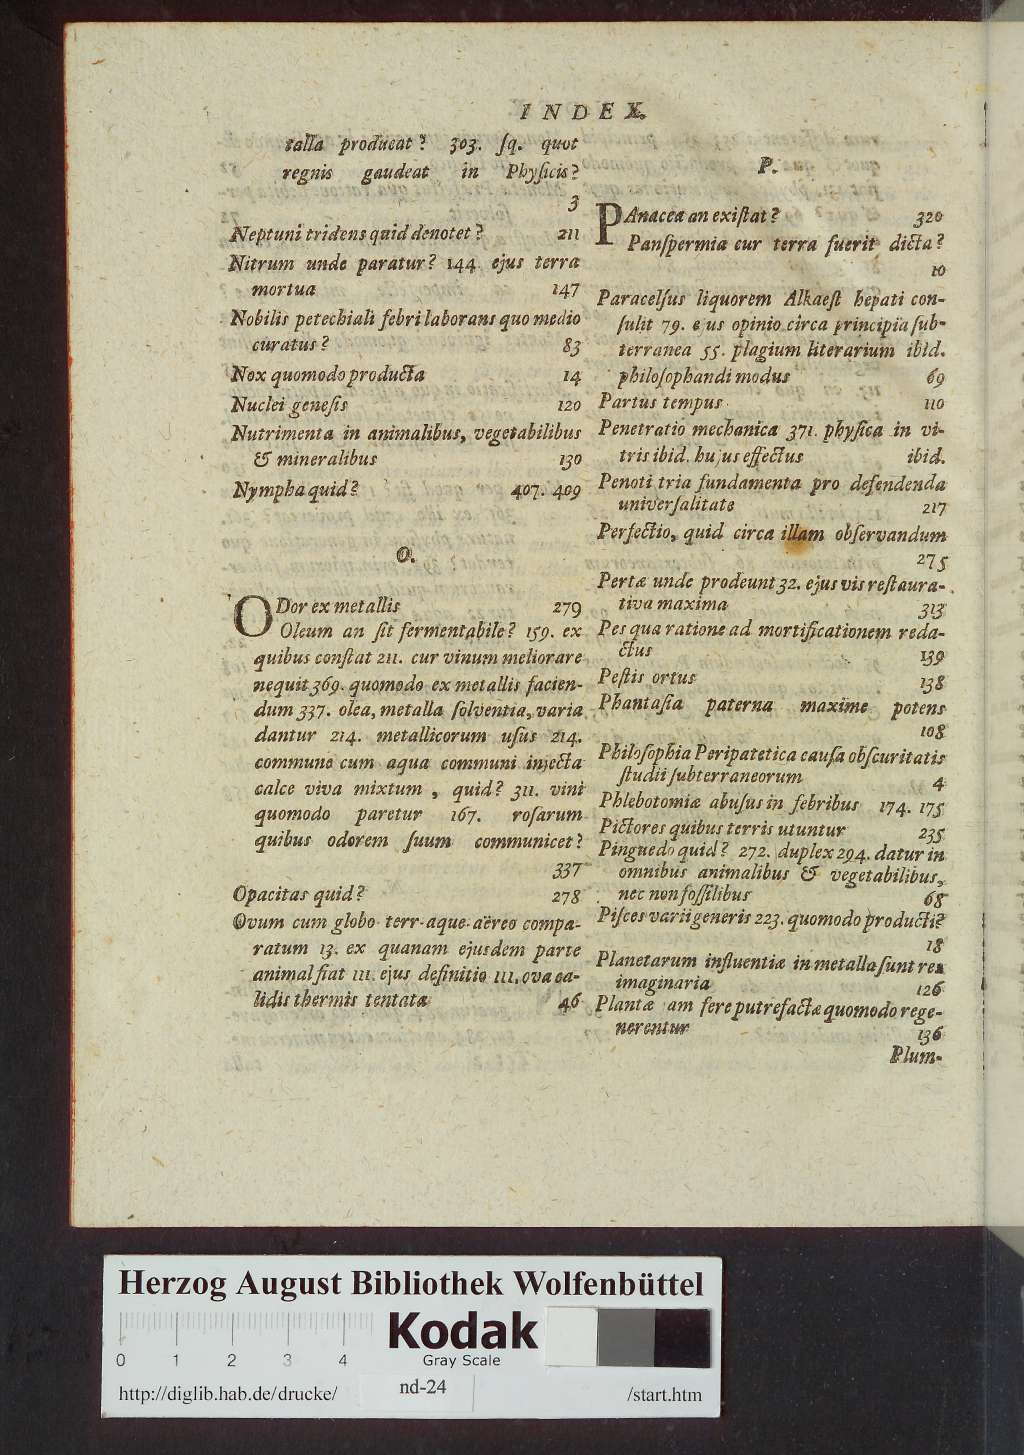 INDEX.
talla producat? 303. ſq. quot
regnis gaudeat in Phyſicis?
3
Neptuni tridens quid denotet? 211
Nitrum unde paratur? 144. ejus terra
mortua 147
Nobilis petechiali febri laborans quo medio
curatus? 83
Nox quomodo producta 14
Nuclei geneſis 120
Nutrimenta in animalibus, vegetabilibus
& mineralibus 130
Nympha quid? 407. 409
O.
ODor ex metallis 279
Oleum an ſit fermentabile? 159. ex
quibus conſtat 211. cur vinum meliorare
nequit 369. quomodo ex metallis facien-
dum 337. olea, metalla ſolventia, varia
dantur 214. metallicorum uſus 214.
commune cum aqua communi injecta
calce viva mixtum, quid? 311. vini
quomodo paretur 167. roſarum
quibus odorem ſuum communicet?
337
Opacitas quid? 278
Ovum cum globo terr-aque-aëreo compa-
ratum 13. ex quanam ejusdem parte
animal fiat 111. ejus definitio 111. ova ca-
lidis thermis tentata 46
P.
PAnacea an exiſtat? 320
Panſpermia cur terra fuerit dicta?
10
Paracelſus liquorem Alkaeſt hepati con-
ſulit 79. ejus opinio circa principia ſub-
terranea 55. plagium literarium ibid.
philoſophandi modus 69
Partus tempus 110
Penetratio mechanica 371. phyſica in vi-
tris ibid. hujus effectus ibid.
Penoti tria fundamenta pro defendenda
univerſalitate 217
Perfectio, quid circa illam obſervandum
275
Pertæ unde prodeunt 32. ejus vis reſtaura-
tiva maxima 313
Pes qua ratione ad mortificationem reda-
ctus 139
Peſtis ortus 138
Phantaſia paterna maxime potens
108
Philoſophia Peripatetica cauſa obſcuritatis
ſtudii ſubterraneorum 4
Phlebotomiæ abuſus in febribus 174. 175
Pictores quibus terris utuntur 235
Pinguedo quid? 272. duplex 294. datur in
omnibus animalibus & vegetabilibus,
nec non foſſilibus 68
Piſces varii generis 223. quomodo producti?
18
Planetarum influentiæ in metalla ſunt res
imaginaria 126
Plantæ jam fere putrefactæ quomodo rege-
nerentur 136
Plum-
Herzog August Bibliothek Wolfenbüttel
Kodak
Gray Scale
0 1 2 3 4
http://diglib.hab.de/drucke/ nd-24 /start.htm